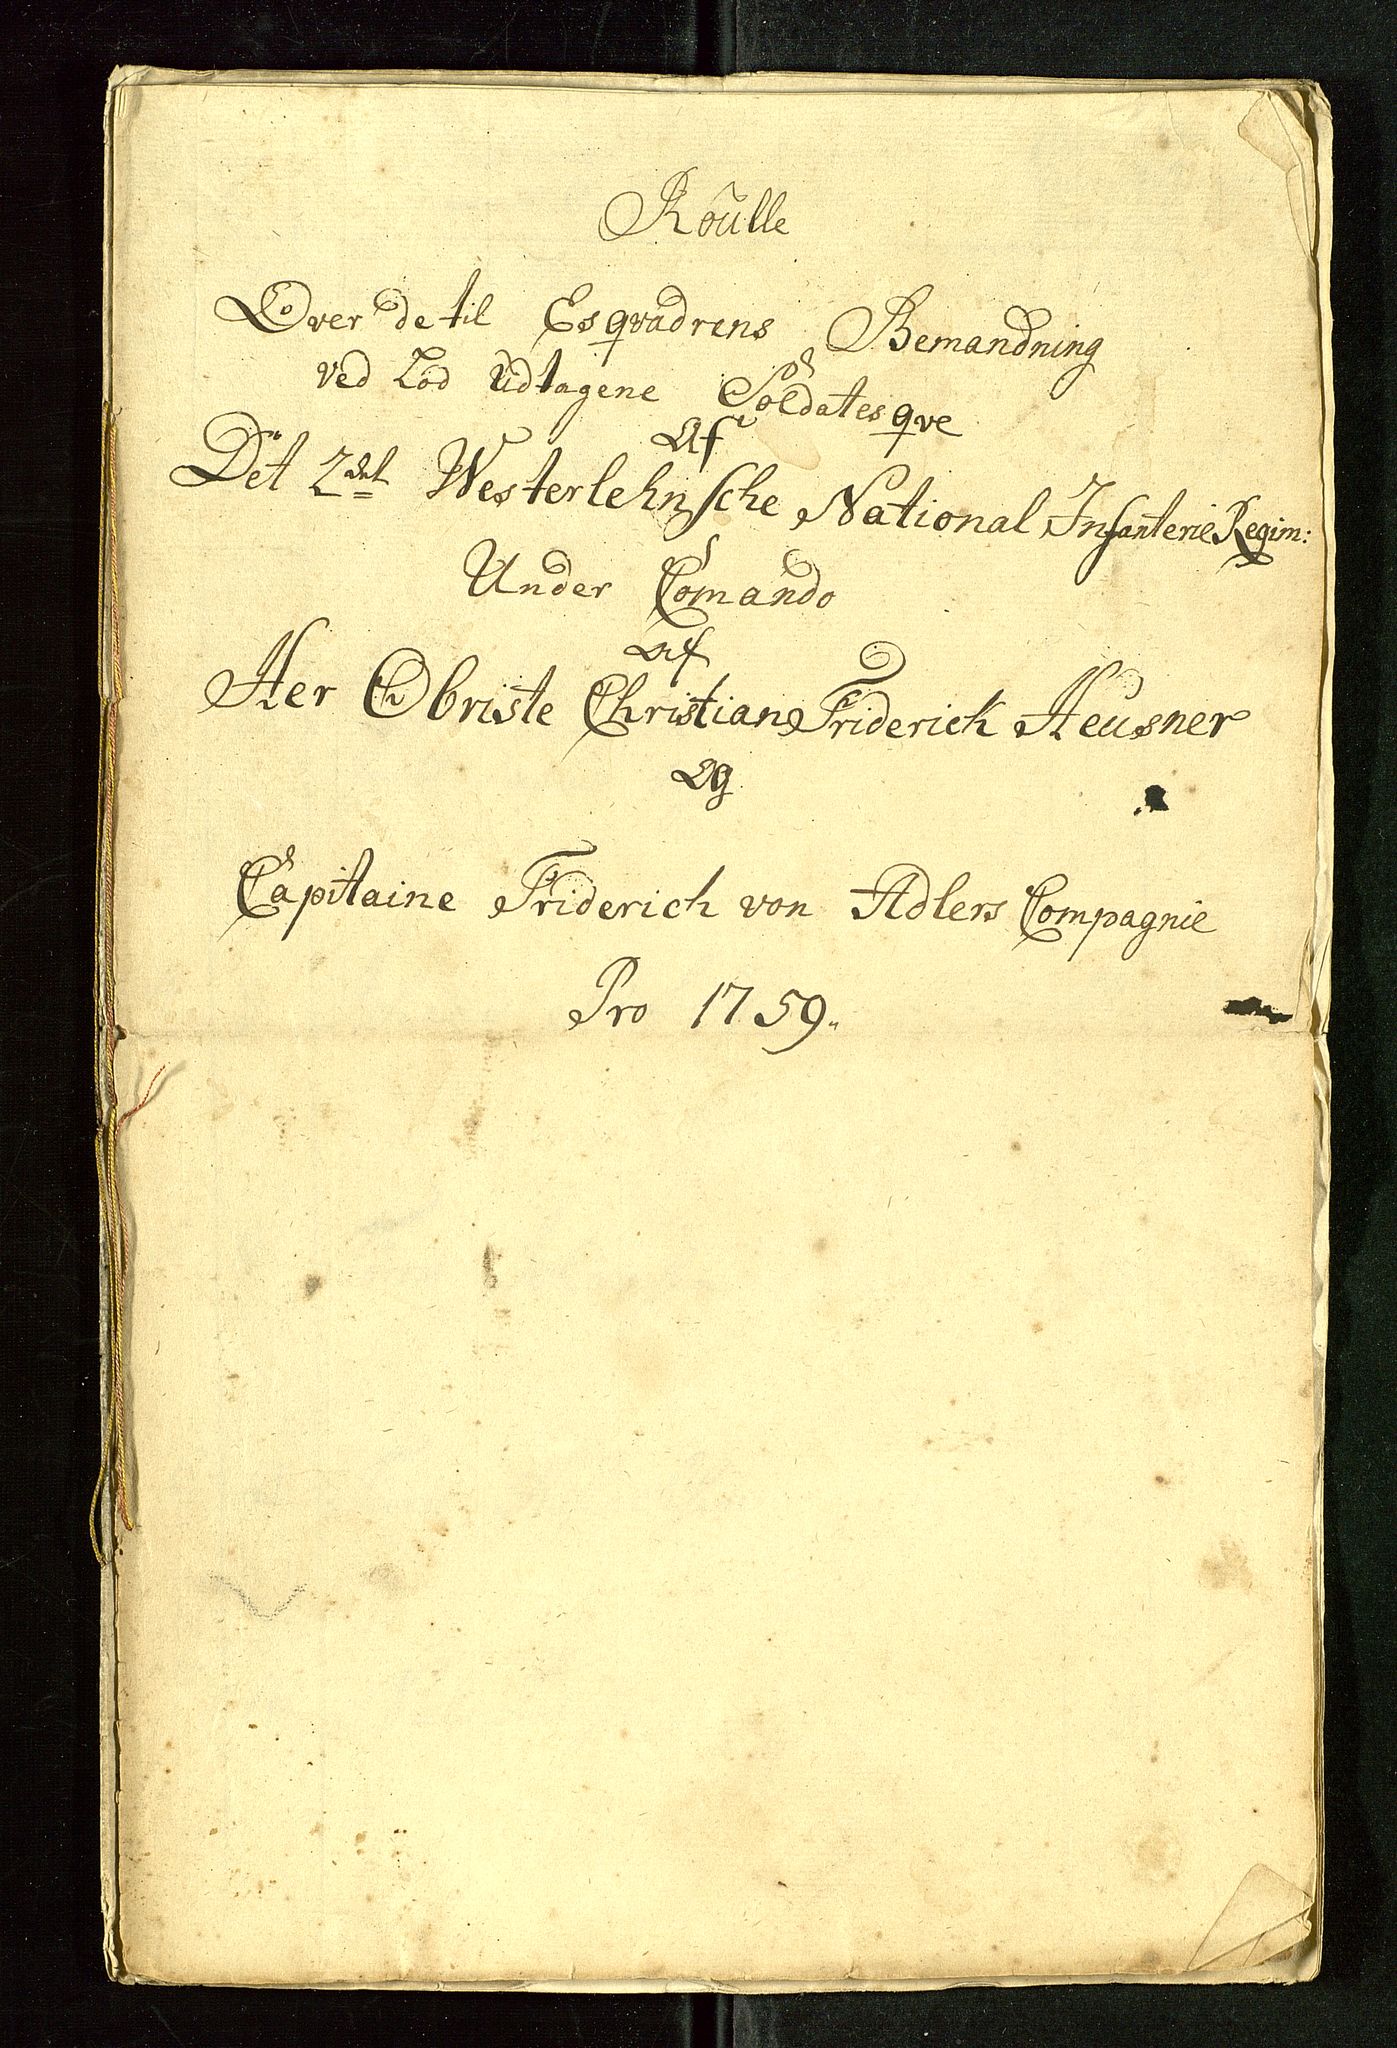 Roulle
Over de til Esqvadrens Bemandning
ved Lod Udtagene Soldatesqve
Af
Det 2det Westerlehnsche National Infanterie Regim:
Under Comando
Af
Her Obriste Christian Friderick Heusner
Og
Capitaine Friderich von Adlers Compagnie
Pro 1759.